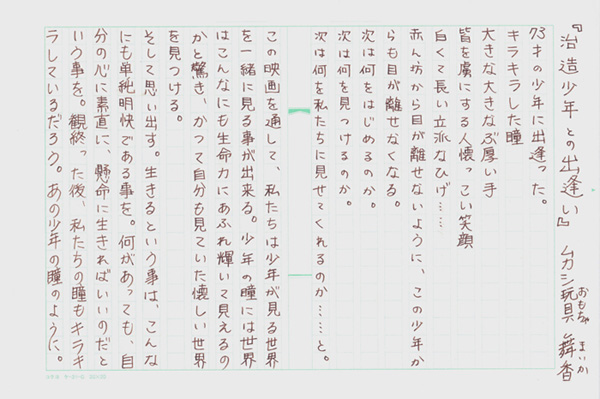 『治造少年との出逢い』 ムカシ玩具 舞香
おもちゃ まいか
73才の少年に出逢った。
キラキラした瞳
大きな大きなぶ厚い手
皆を虜にする人懐っこい笑顔
白くて長い立派なひげ……
赤ん坊から目が離せないように、この少年か
らも目が離せなくなる。
次は何をはじめるのか。
次は何を見つけるのか。
次は何を私たちに見せてくれるのか……と。
この映画を通して、私たちは少年が見る世界
を一緒に見る事が出来る。少年の瞳には世界
はこんなにも生命力にあふれ輝いて見えるの
かと驚き、かつて自分も見ていた懐しい世界
を見つける。
そして思い出す。生きるという事は、こんな
にも単純明快である事を。何があっても、自
分の心に素直に、懸命に生きればいいのだと
いう事を。観終った後、私たちの瞳もキラキ
ラしているだろう。あの少年の瞳のように。